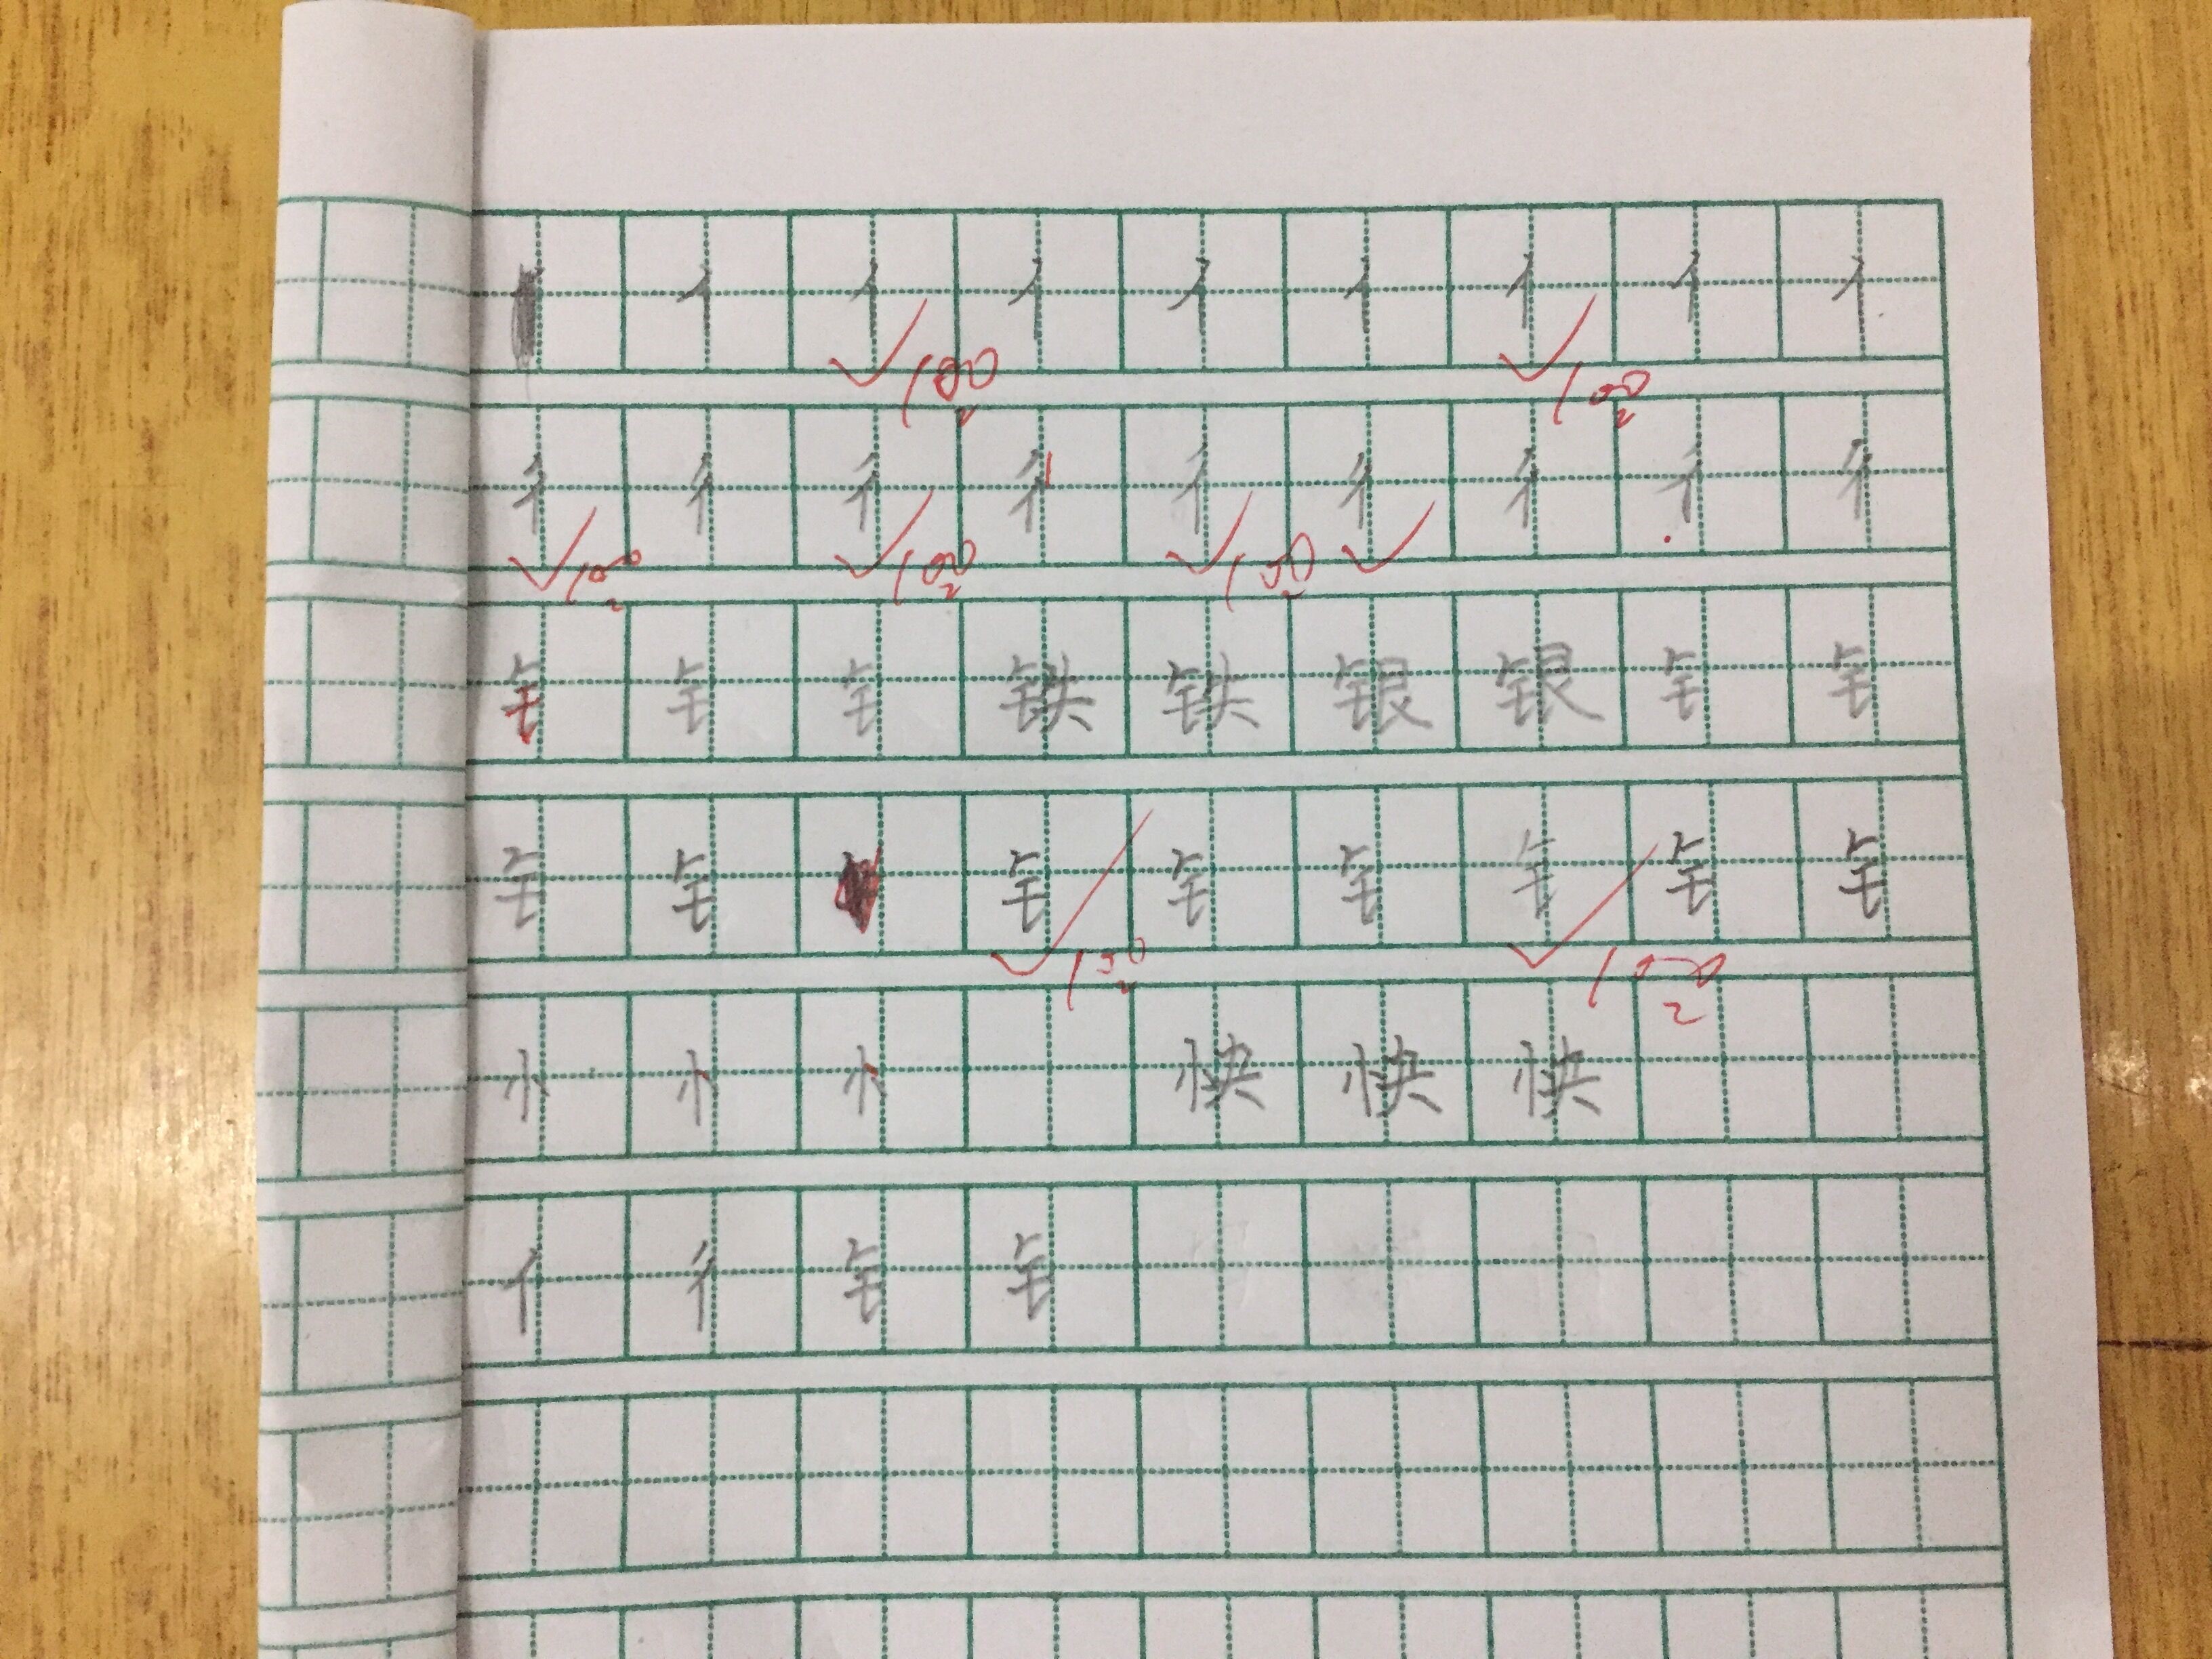 亻 亻 亻 亻 亻 亻 亻 亻
100 100
彳 彳 彳 彳 彳 彳 彳 彳 彳
100 100 100
钅 钅 钅 铁 铁 银 银 钅 钅
钅 钅 钅 钅 钅 钅 钅 钅
100 100
忄 忄 忄 快 快 快
亻 彳 钅 钅